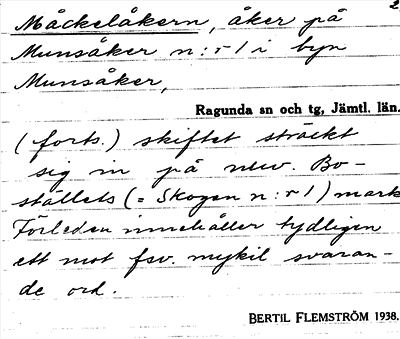 2
Måckelåkern, åker på
Munsåker n:r 1 i byn
Munsåker,
Ragunda sn och tg, Jämtl. län.
(forts.) skiftet sträckt
sig in på nuv. Bo-
ställets (= Skogen n:r 1) mark
Förleden innehåller tydligen
ett mot fsv. mykil svaran-
de ord.
BERTIL FLEMSTRÖM 1938.